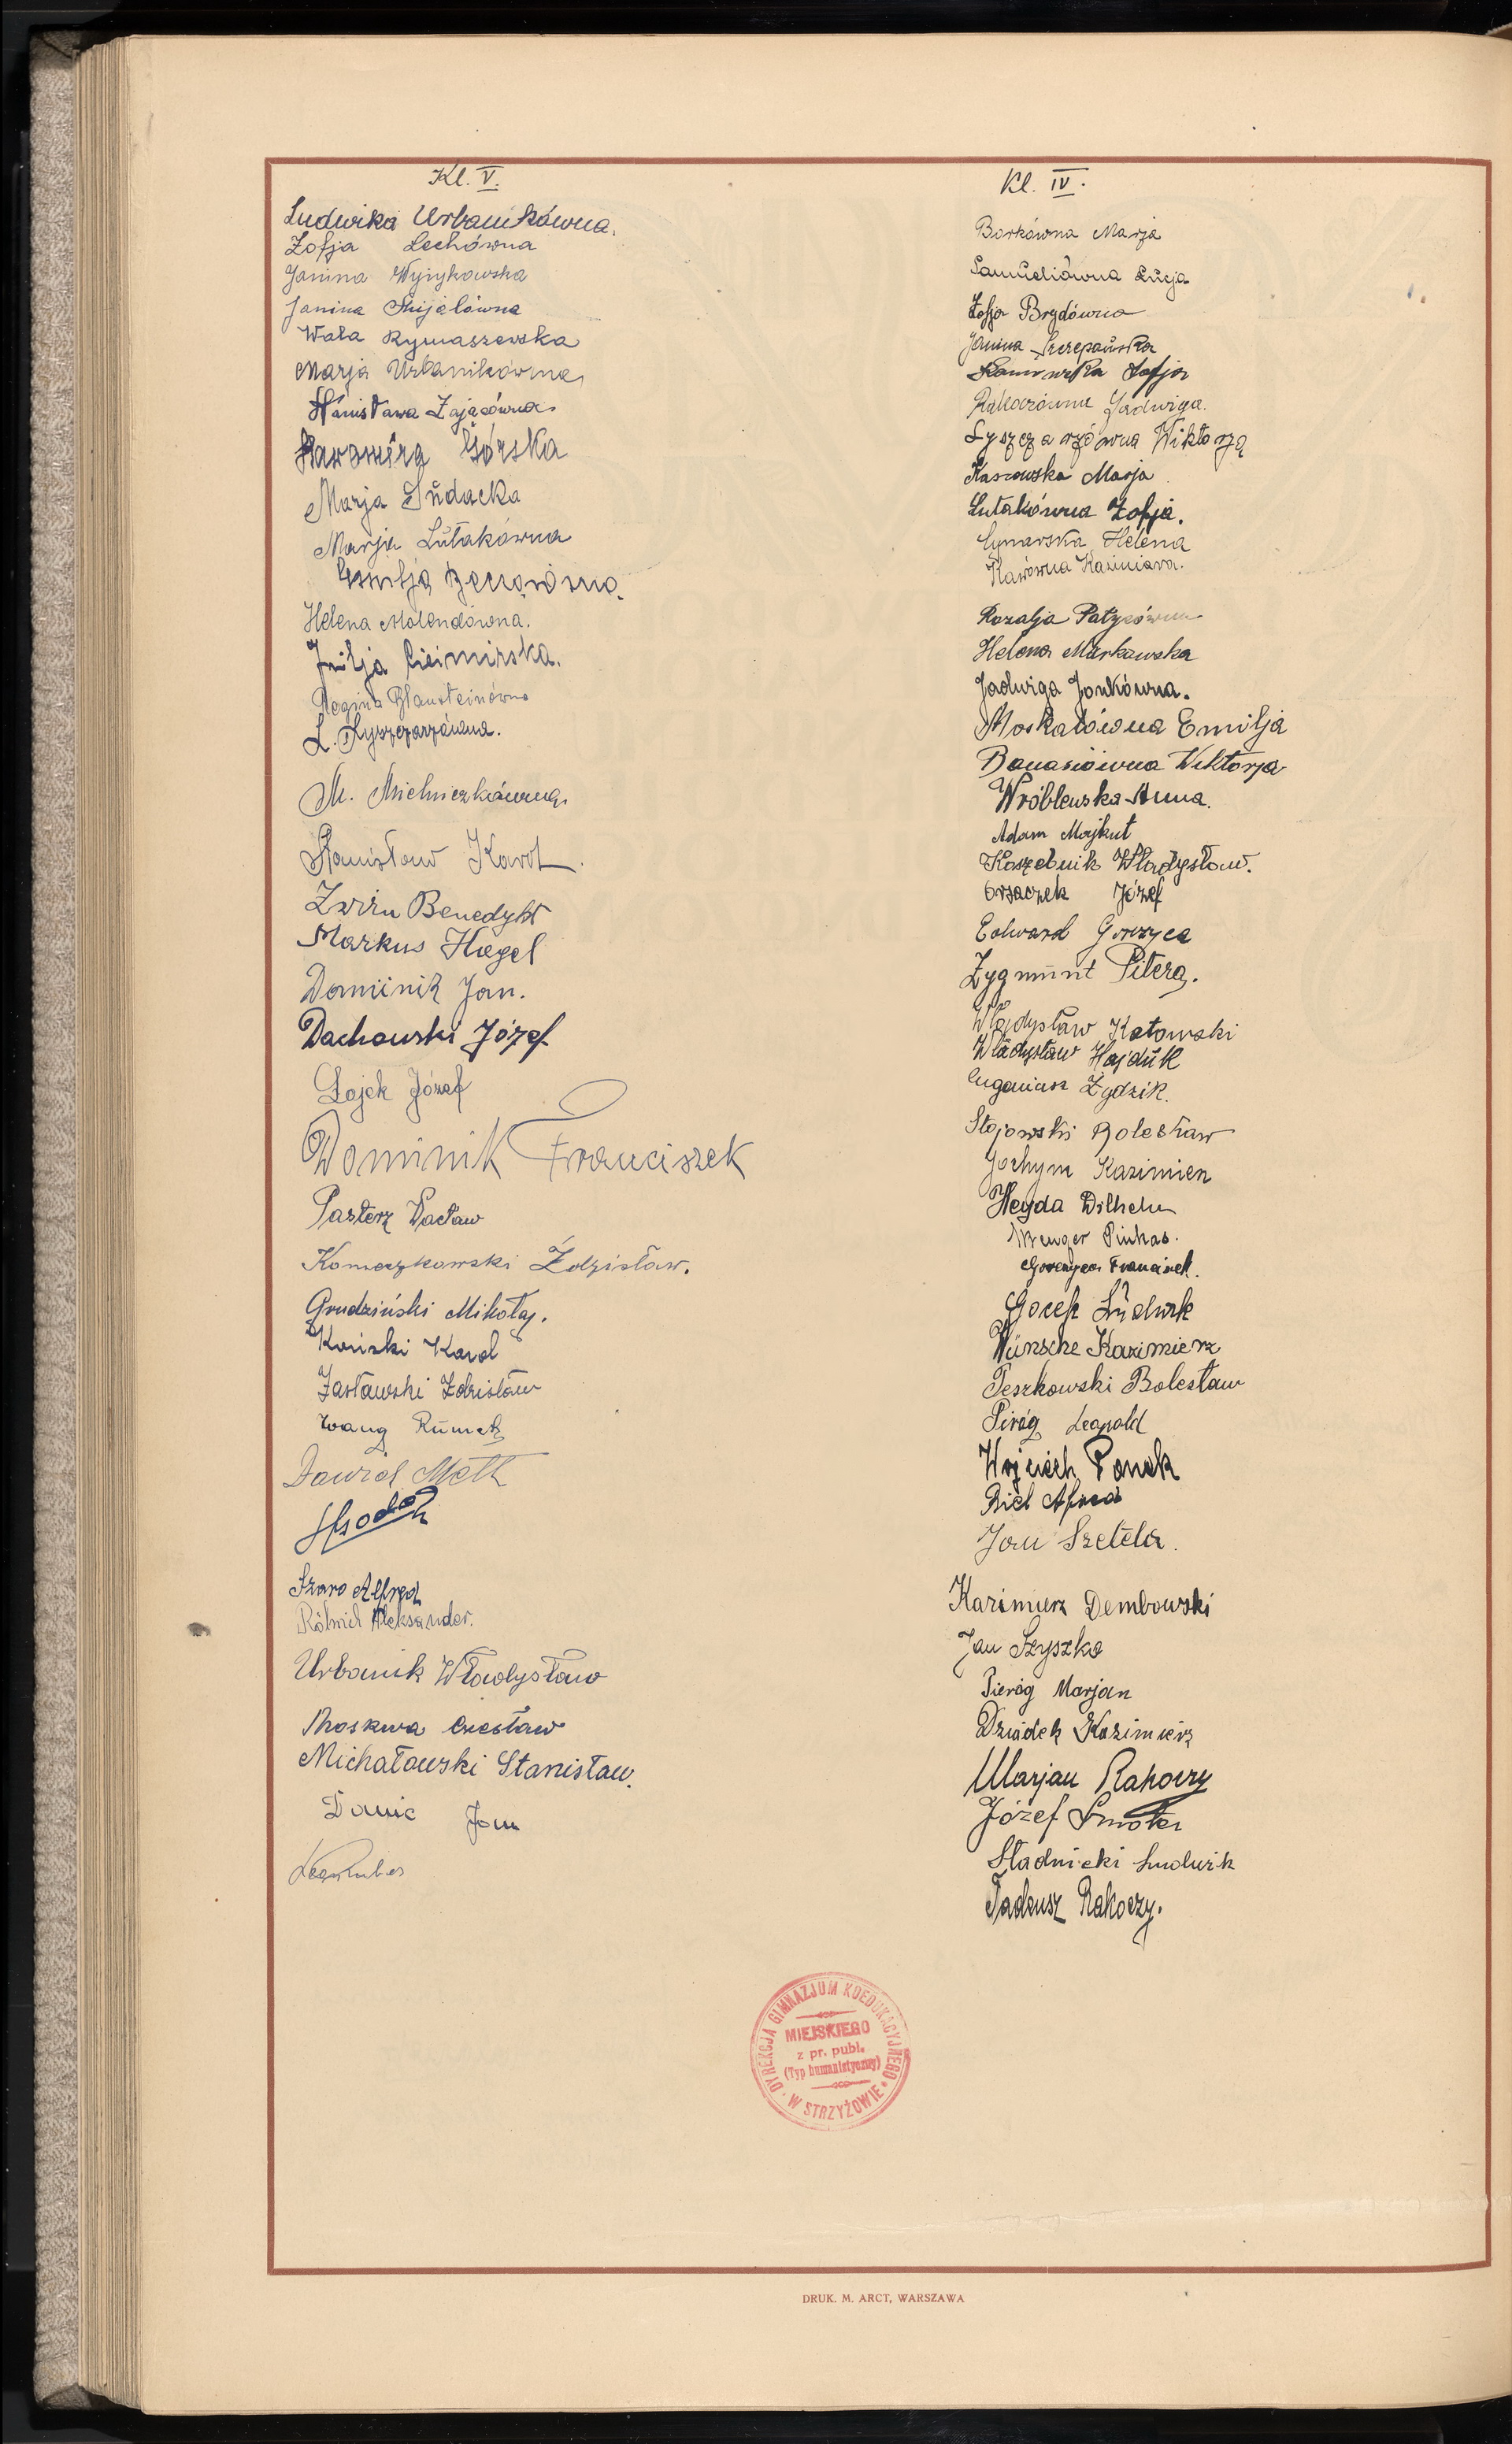 Kl. V.
Ludwika Urbanikówna.
Zofja Lechówna
Janina Wyżykowska
Janina
Wala Rymaszewska
Marja Urbanikówna
Stanisława Zającówna
Sławomira Górska
Marja
Marja Lutakówna
Emilja
Helena Molendówna.
Julja
Regina Blausteinówna
L. Łyszczarzówna.
M. Mielniczkówna
Stanisław Karol
Żwiru Benedykt
Markus Hagel
Dominik Jan.
Dachowski Józef
Łojek Józef
Dominik Franciszek
Pasterz Wacław
Konieczkowski Zdzisław.
Grudziński Mikołaj.
Koński Karol
Zasławski Zdzisław
Wang
Dawid Meth
Szaro Alfred
Aleksander.
Urbanik Władysław
Moskwa Czesław
Michałowski Stanisław.
Danie Jan
Kl. IV.
Borkówna Marja
Samueliówna Łucja
Zofja Brydówna
Janina Szczepańska
Zofja
Jadwiga.
Łyszczarzówna Wiktorja
Marja
Lutakówna Zofja.
Cynarska Helena
Kawówna Kazimiera.
Rozalja Patrycówna
Helena Markowska
Jadwiga Jonkówna.
Moskalówna Emilja
Banasiówna Wiktorja
Wróblewska Anna.
Adam Majkut
Koszelnik Władysław.
Orzaczek Józef
Edward Gorzyca
Zygmunt Pitera.
Władysław Kotowski
Władysław Hajduk
Eugeniusz Żydzik.
Stojowski Bolesław
Jochym Kazimierz
Heyda Wilhelm
Wenger Pinkas.
Gorzyca Franciszek.
Gocek Ludwik
Wünsche Kazimierz
Teszkowski Bolesław
Piróg Leopold
Wojciech Ponek
Biel Alfred
Jan Szetela.
Kazimierz Dembowski
Jan Szyszka
Pieróg Marjan
Dziadek Kazimierz
Marjan Rakoczy
Józef Smołka
Stadnicki Ludwik
Tadeusz Rakoczy.
DYREKCJA GIMNAZJUM KOEDUKACYJNEGO
MIEJSKIEGO
z pr. publ.
(Typ humanistyczny)
W STRZYŻOWIE
DRUK. M. ARCT, WARSZAWA